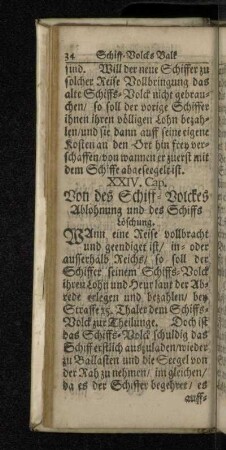 34 Schiff-Volcks Balk
sind. Will der neue Schiffer zu
solcher Reise Vollbringung das
alte Schiffs-Volck nicht gebrau-
chen/ so soll der vorige Schiffer
ihnen ihren völligen Lohn bezah-
len/und sie dann auff seine eigene
Kosten an den -Ort hin frey ver-
schaffen/von wannen er zuerst mit
dem Schiffe abgesegelt ist.
XXIV. Cap.
Von des Schiff-Volckes
Ablohnung und des Schiffs
Löschung.
WAnn eine Reise vollbracht
und geendiget ist/ in- oder
ausserhalb Reichs/ so soll der
Schiffer seinem Schiffs-Volck
ihren Lohn und Heur laut der Ab-
rede erlegen und bezahlen/ bey
Straffe 25. Thaler dem Schiffs-
Volck zur Theilunge. Doch ist
das Schiffs-Volck schuldig das
Schiff erstlich auszuladen/wieder
zu Ballasten und die Seegel von
der Rah zu nehmen/ im gleichen/
da es der Schiffer begehret/ es
auff-